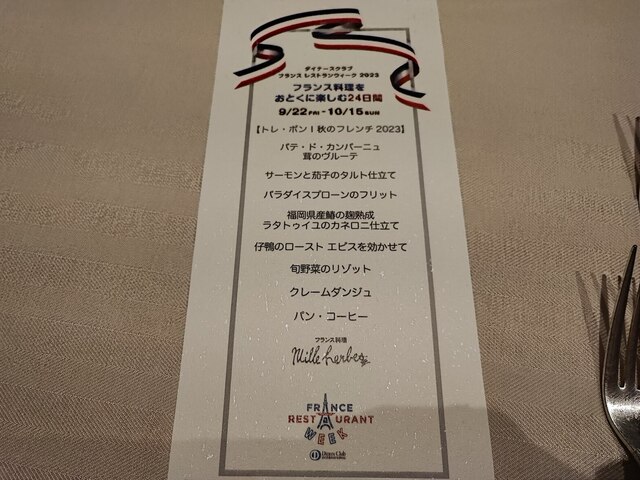 ダイナースクラブ
フランス レストランウィーク 2023
フランス料理を
おとくに楽しむ24日間
9/22 FRI - 10/15 SUN
【トレ・ボン!秋のフレンチ2023】
パテ・ド・カンパーニュ
茸のヴルーテ
サーモンと茄子のタルト仕立て
パラダイスプローンのフリット
福岡県産鰆の麹熟成
ラタトゥイユのカネロニ仕立て
仔鴨のロースト エピスを効かせて
旬野菜のリゾット
クレームダンジュ
パン・コーヒー
フランス料理
Mille herbes
FRANCE
RESTAURANT
WEEK
Diners Club
INTERNATIONAL